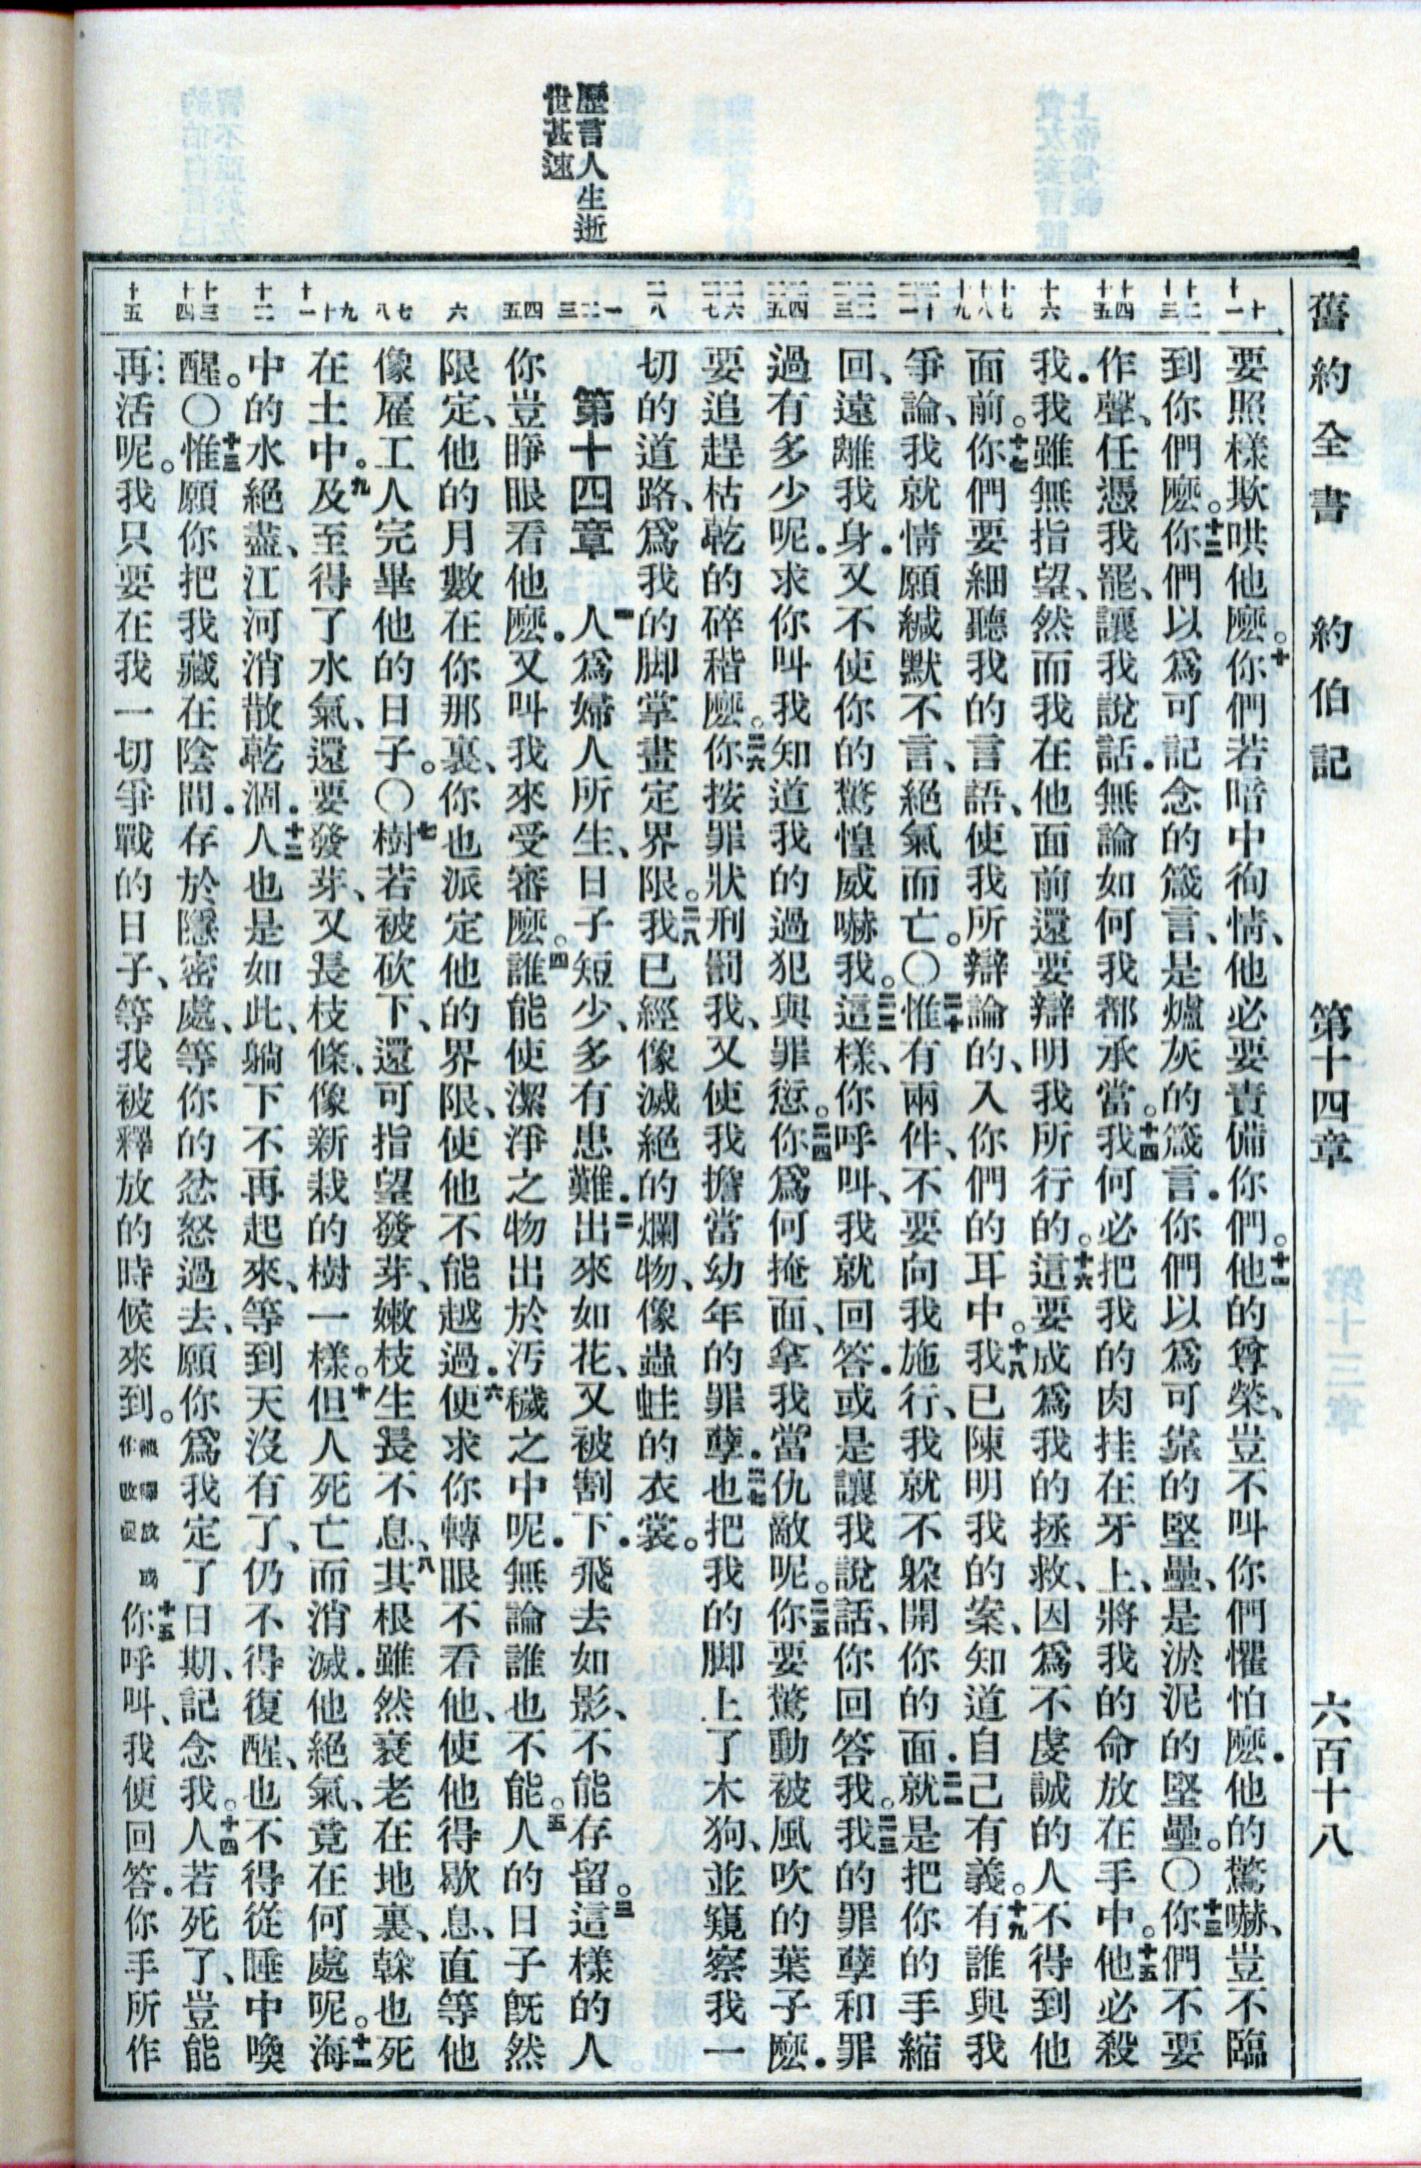 舊約全書　約伯記　第十四章　六百十八
歷言人生逝
世甚速
要照樣欺哄他麽。十你們若暗中徇情、他必要責備你們。十一他的尊榮、豈不叫你們懼怕麽．他的驚嚇、豈不臨
到你們麽。十二你們以爲可記念的箴言、是爐灰的箴言．你們以爲可靠的堅壘、是淤泥的堅壘。〇十三你們不要
作聲、任憑我罷、讓我說話．無論如何我都承當。十四我何必把我的肉挂在牙上、將我的命放在手中。十五他必殺
我．我雖無指望、然而我在他面前還要辯明我所行的。十六這要成爲我的拯救、因爲不虔誠的人不得到他
面前。十七你們要細聽我的言語、使我所辯論的、入你們的耳中。十八我已陳明我的案、知道自己有義。十九有誰與我
爭論、我就情願緘默不言、絕氣而亡。〇二十惟有兩件、不要向我施行、我就不躱開你的面．二一就是把你的手縮
回、遠離我身．又不使你的驚惶威嚇我。二二這樣、你呼叫、我就回答．或是讓我說話、你回答我。二三我的罪孽和罪
過有多少呢．求你叫我知道我的過犯與罪愆。二四你爲何掩面、拿我當仇敵呢。二五你要驚動被風吹的葉子麽．
要追趕枯乾的碎稭麽。二六你按罪狀刑罰我、又使我擔當幼年的罪孽．二七也把我的脚上了木狗、並窺察我一
切的道路、爲我的脚掌畫定界限。二八我已經像滅絕的爛物、像蟲蛀的衣裳。
第十四章　一人爲婦人所生、日子短少、多有患難．二出來如花、又被割下．飛去如影、不能存留。三這樣的人
你豈睜眼看他麽．又叫我來受審麽。四誰能使潔淨之物出於汚穢之中呢．無論誰也不能。五人的日子旣然
限定、他的月數在你那裏、你也派定他的界限、使他不能越過．六便求你轉眼不看他、使他得歇息、直等他
像雇工人完畢他的日子。〇七樹若被砍下、還可指望發芽、嫩枝生長不息、八其根雖然衰老在地裏、榦也死
在土中。九及至得了水氣、還要發芽、又長枝條、像新栽的樹一樣。十但人死亡而消滅．他絕氣、竟在何處呢。十一海
中的水絕盡、江河消散乾涸．十二人也是如此、躺下不再起來、等到天沒有了、仍不得復醒、也不得從睡中喚
醒。〇十三惟願你把我藏在陰間．存於隱密處、等你的忿怒過去、願你爲我定了日期、記念我。十四人若死了、豈能
再活呢。我只要在我一切爭戰的日子、等我被釋放的時候來到。被釋放或作改變十五你呼叫、我便回答．你手所作